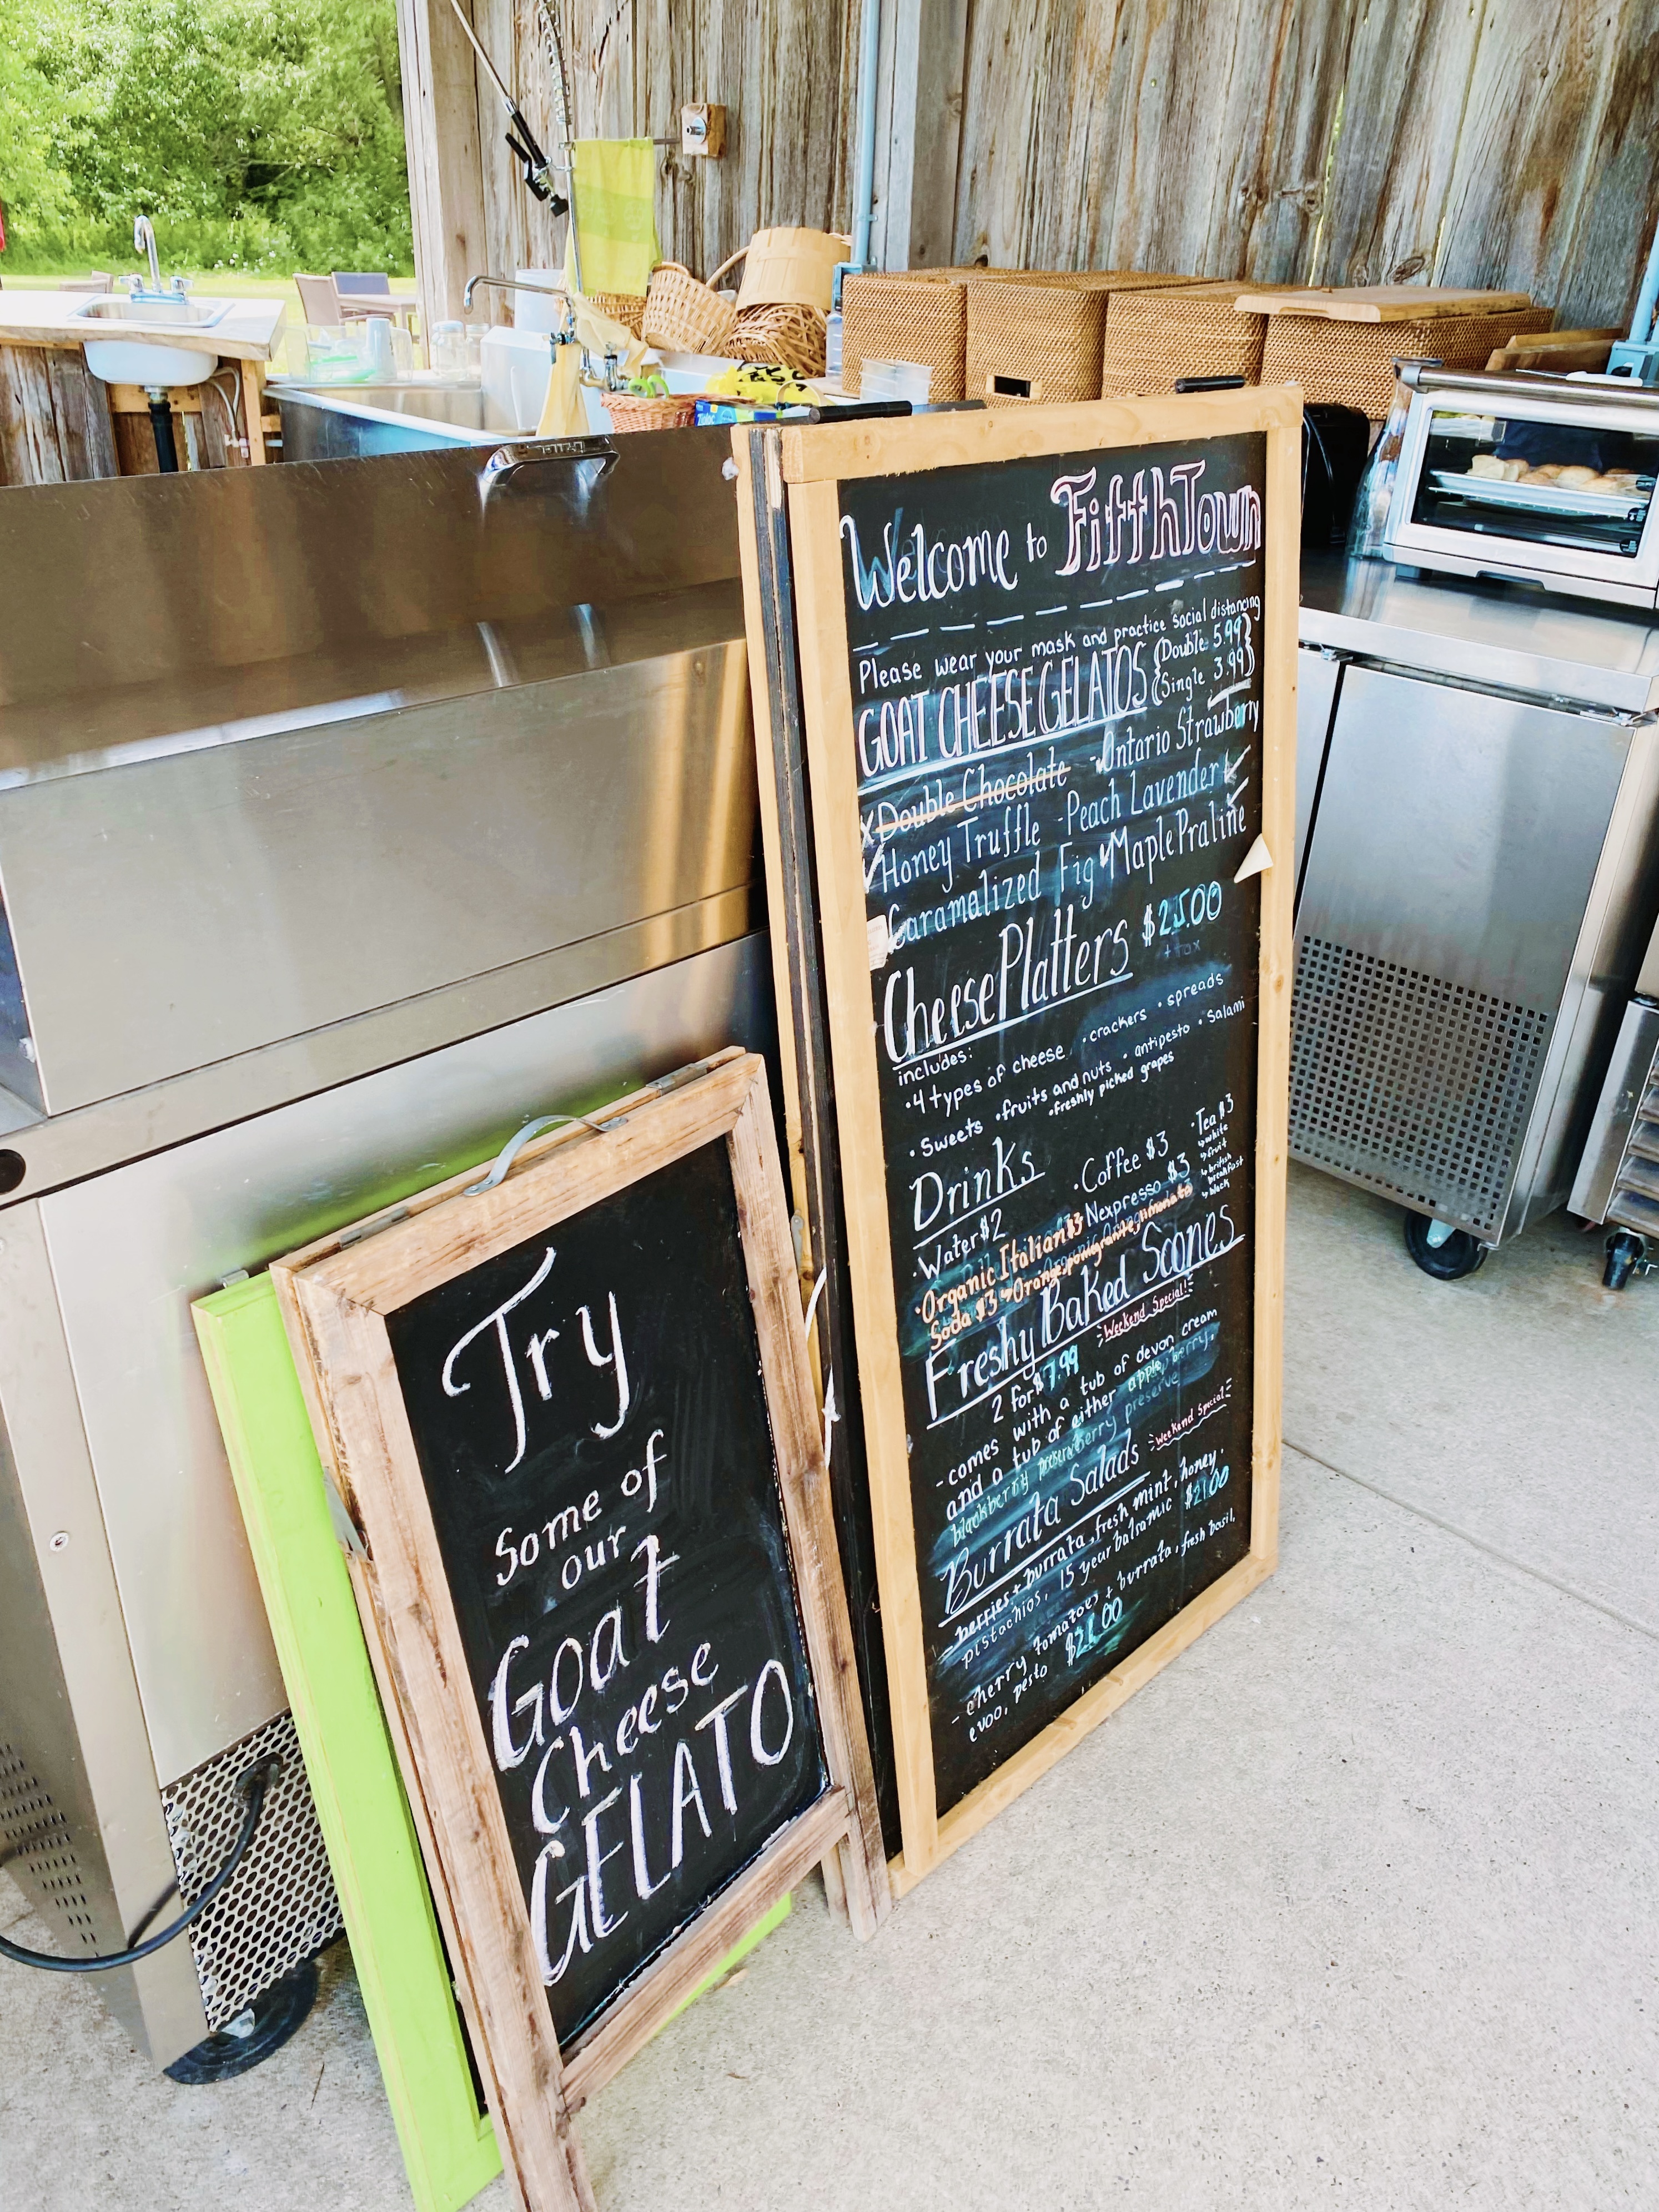 Welcome to FifthTown
Please wear your mask and practice social distancing
GOAT CHEESE GELATOS { Double 5.99 }
{ Single 3.99 }
x Double Chocolate - Ontario Strawberry
Honey Truffle - Peach Lavender
Caramalized Fig Maple Praline
Cheese Platters $25.00
+ tax
includes:
• 4 types of cheese • crackers • spreads
• Sweets • fruits and nuts • antipesto • Salami
• freshly picked grapes
Drinks
• Coffee $3 • Tea $3
↳ white
↳ fruit
↳ british breakfast
↳ black
• Water $2 • Nexpresso $3
• Organic Italian $3
Soda $3 Orange, pomigranite, limonata
Freshy Baked Scones
Weekend Special!
2 for $7.99
- comes with a tub of devon cream
and a tub of either apple, berry,
blackberry preserve
Burrata Salads
Weekend Special
- berries + burrata, fresh mint, honey,
pistachios, 15 year balsamic $21.00
- cherry tomatoes + burrata, fresh basil,
evoo, pesto $21.00
Try
Some of
our
Goat
Cheese
GELATO